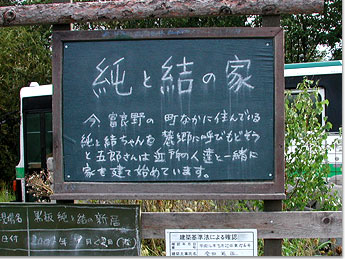 純と結の家
今、富良野の町なかに住んでいる
純と結ちゃんを麓郷に呼びもどそう
と五郎さんは近所の人達と一緒に
家を建て始めています。
黒板 純と結の新居
日付
建築基準法による確認